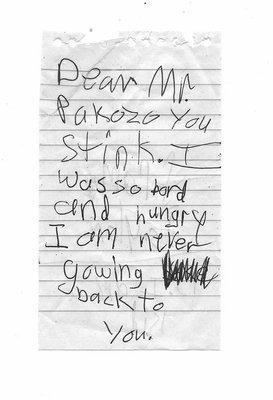 Dear Mr.
Pakozo You
Stink. I
was so bord
and hungry
I am never
gowing
back to
you.